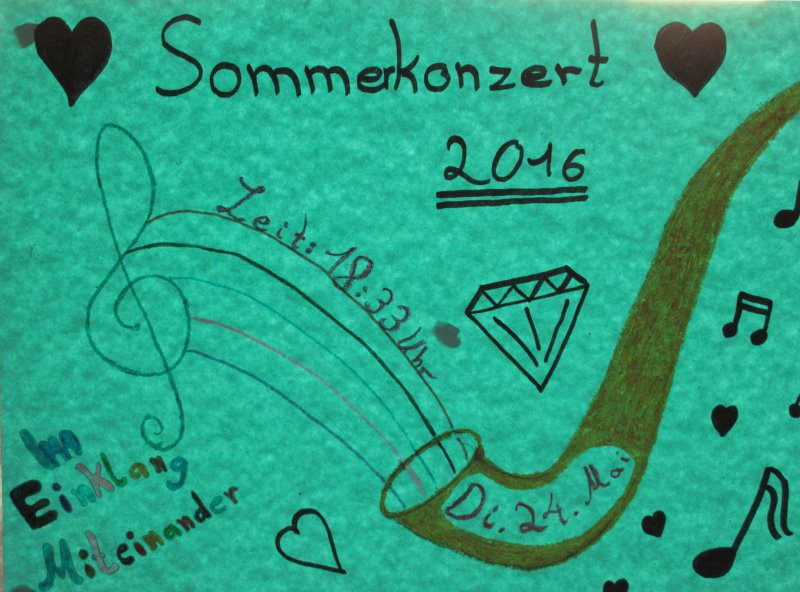 Sommerkonzert
2016
Zeit: 18:33 Uhr
Di. 24. Mai
Im
Einklang
Miteinander